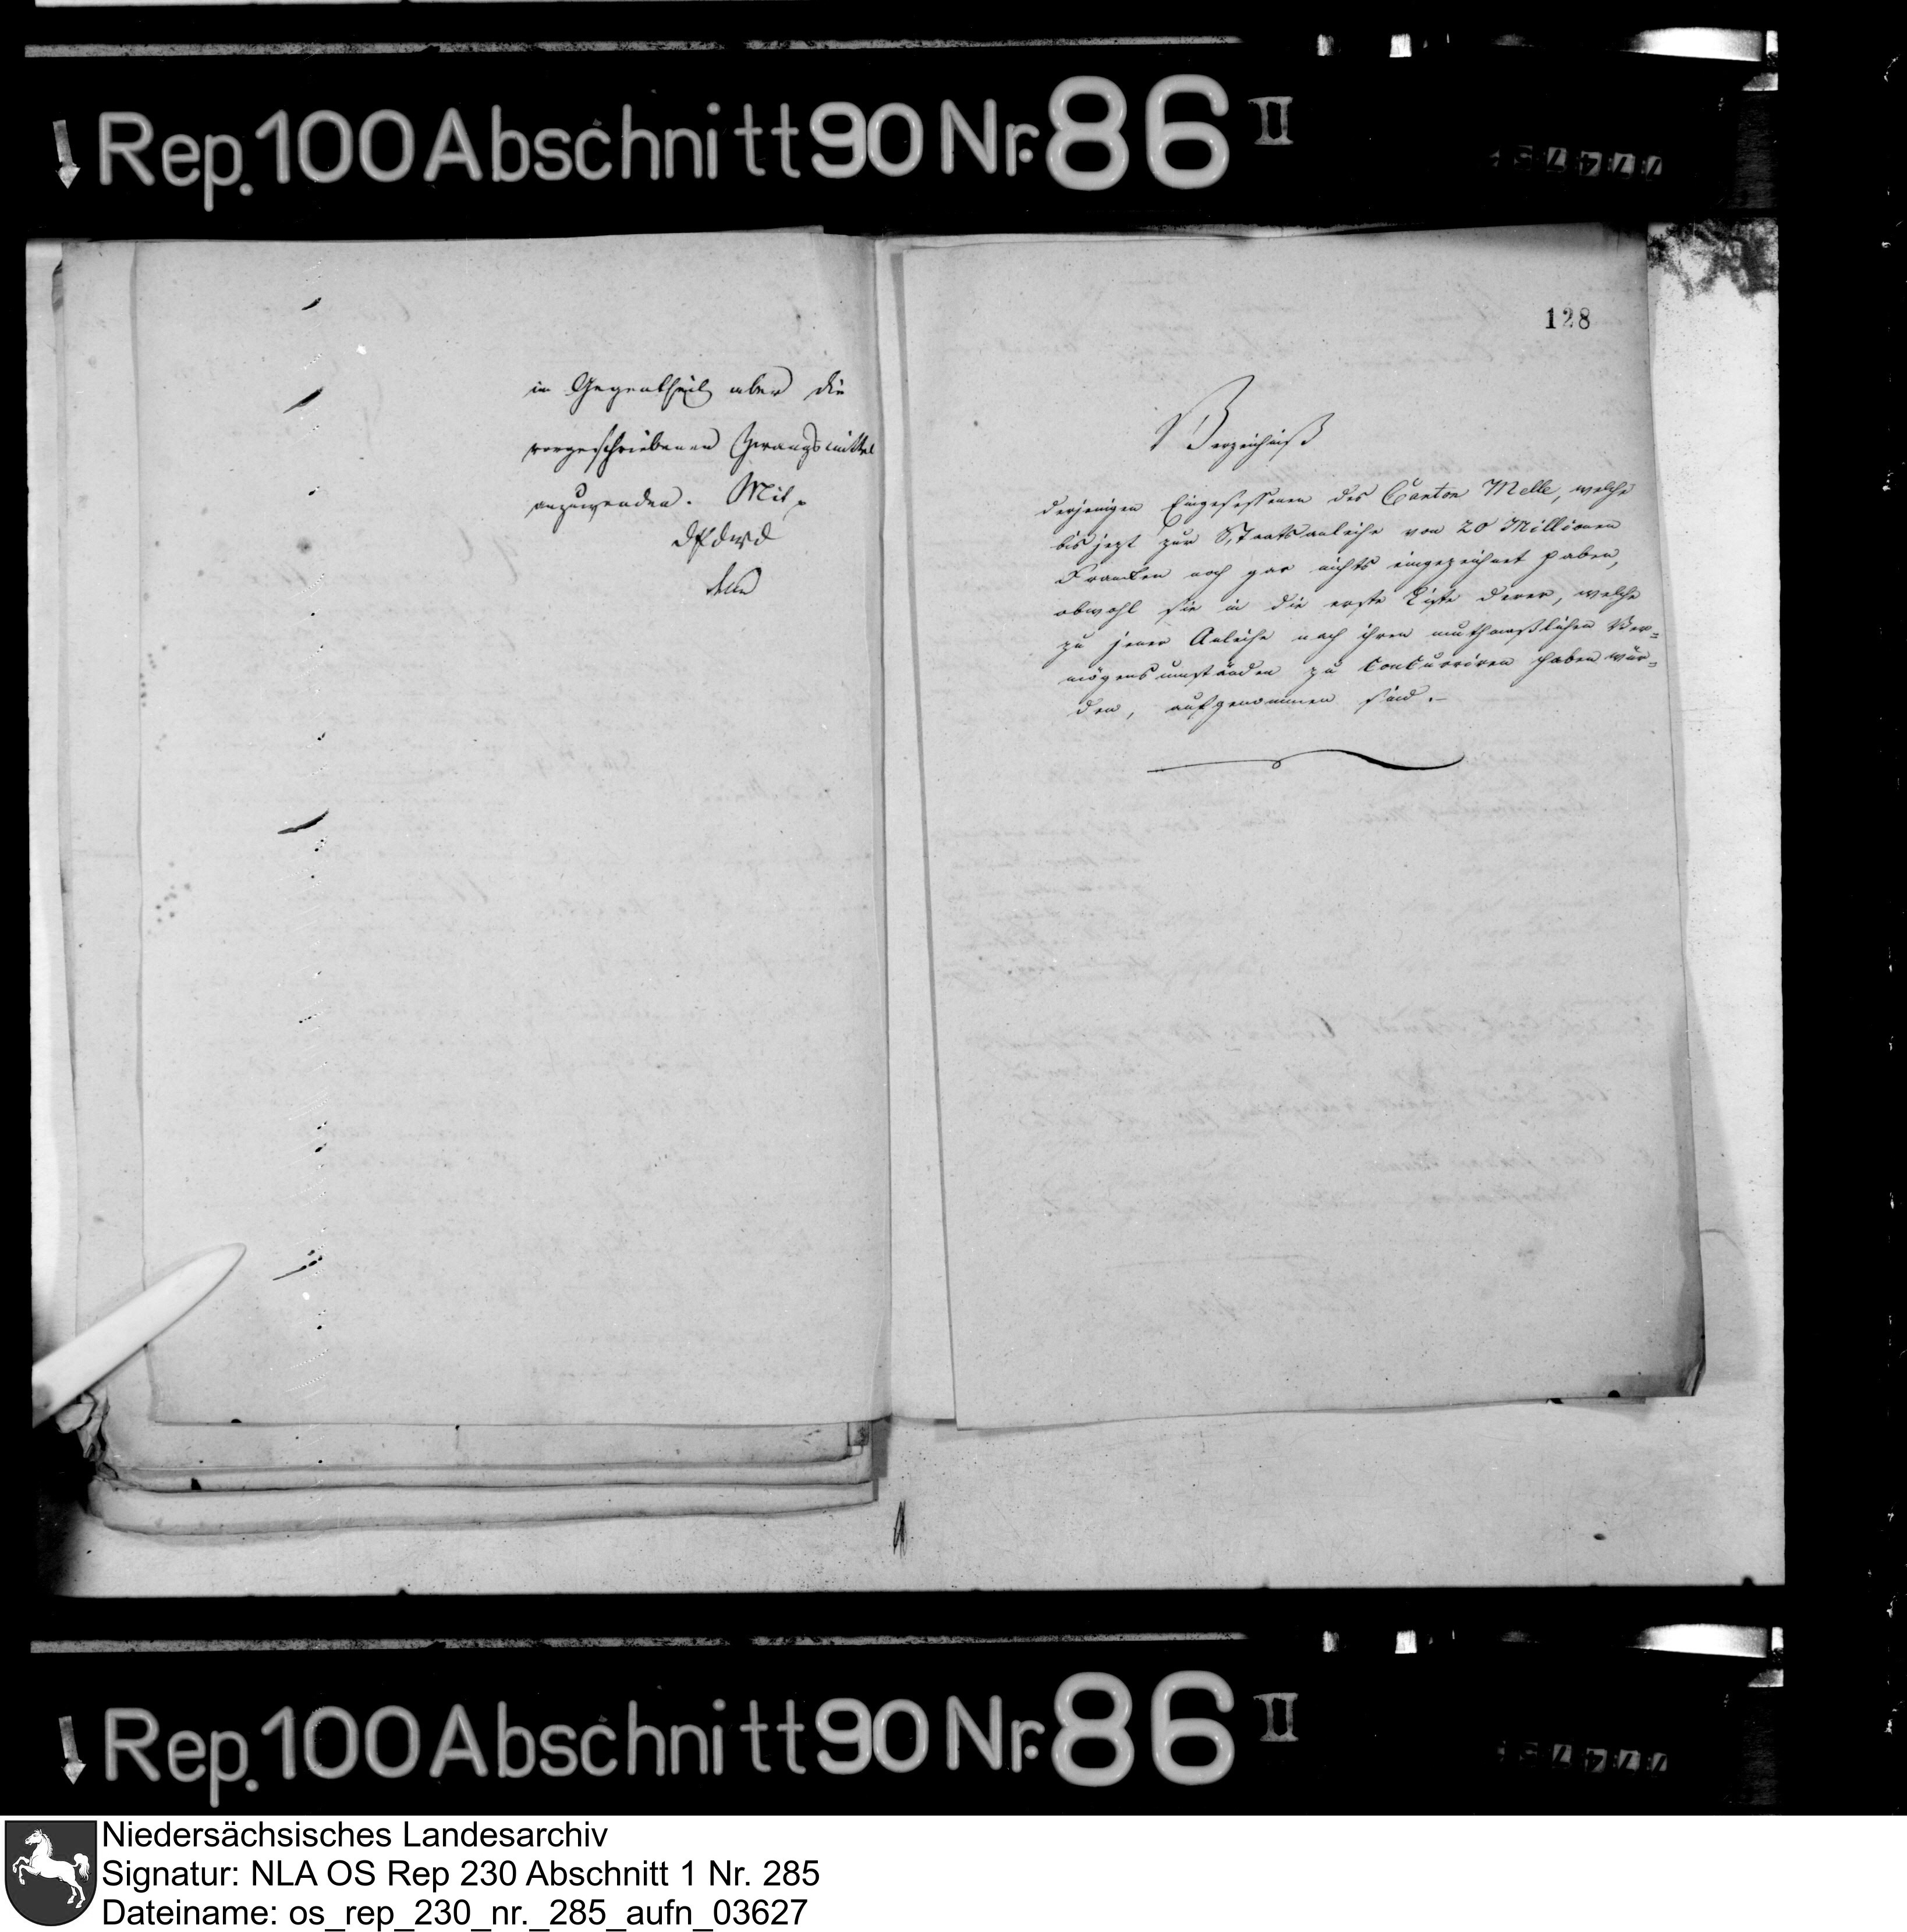 Rep. 100 Abschnitt 90 Nr. 86 II
in Gegentheil aber die
vorgeschriebenen Zwangsmittel
anzuwenden. Mit
128
Verzeichniß
derjenigen Eingesessenen des Canton Melle, welche
bis jezt zur Staatsanleihe von 20 Millionen
Franken noch gar nichts eingezeichnet haben,
obwohl sie in die erste Liste derer, welche
zu jener Anleihe nach ihren muthmaßlichen Ver-
mögensumständen zu concurriren haben wür-
den, aufgenommen sind.
Rep. 100 Abschnitt 90 Nr. 86 II
Niedersächsisches Landesarchiv
Signatur: NLA OS Rep 230 Abschnitt 1 Nr. 285
Dateiname: os_rep_230_nr._285_aufn_03627